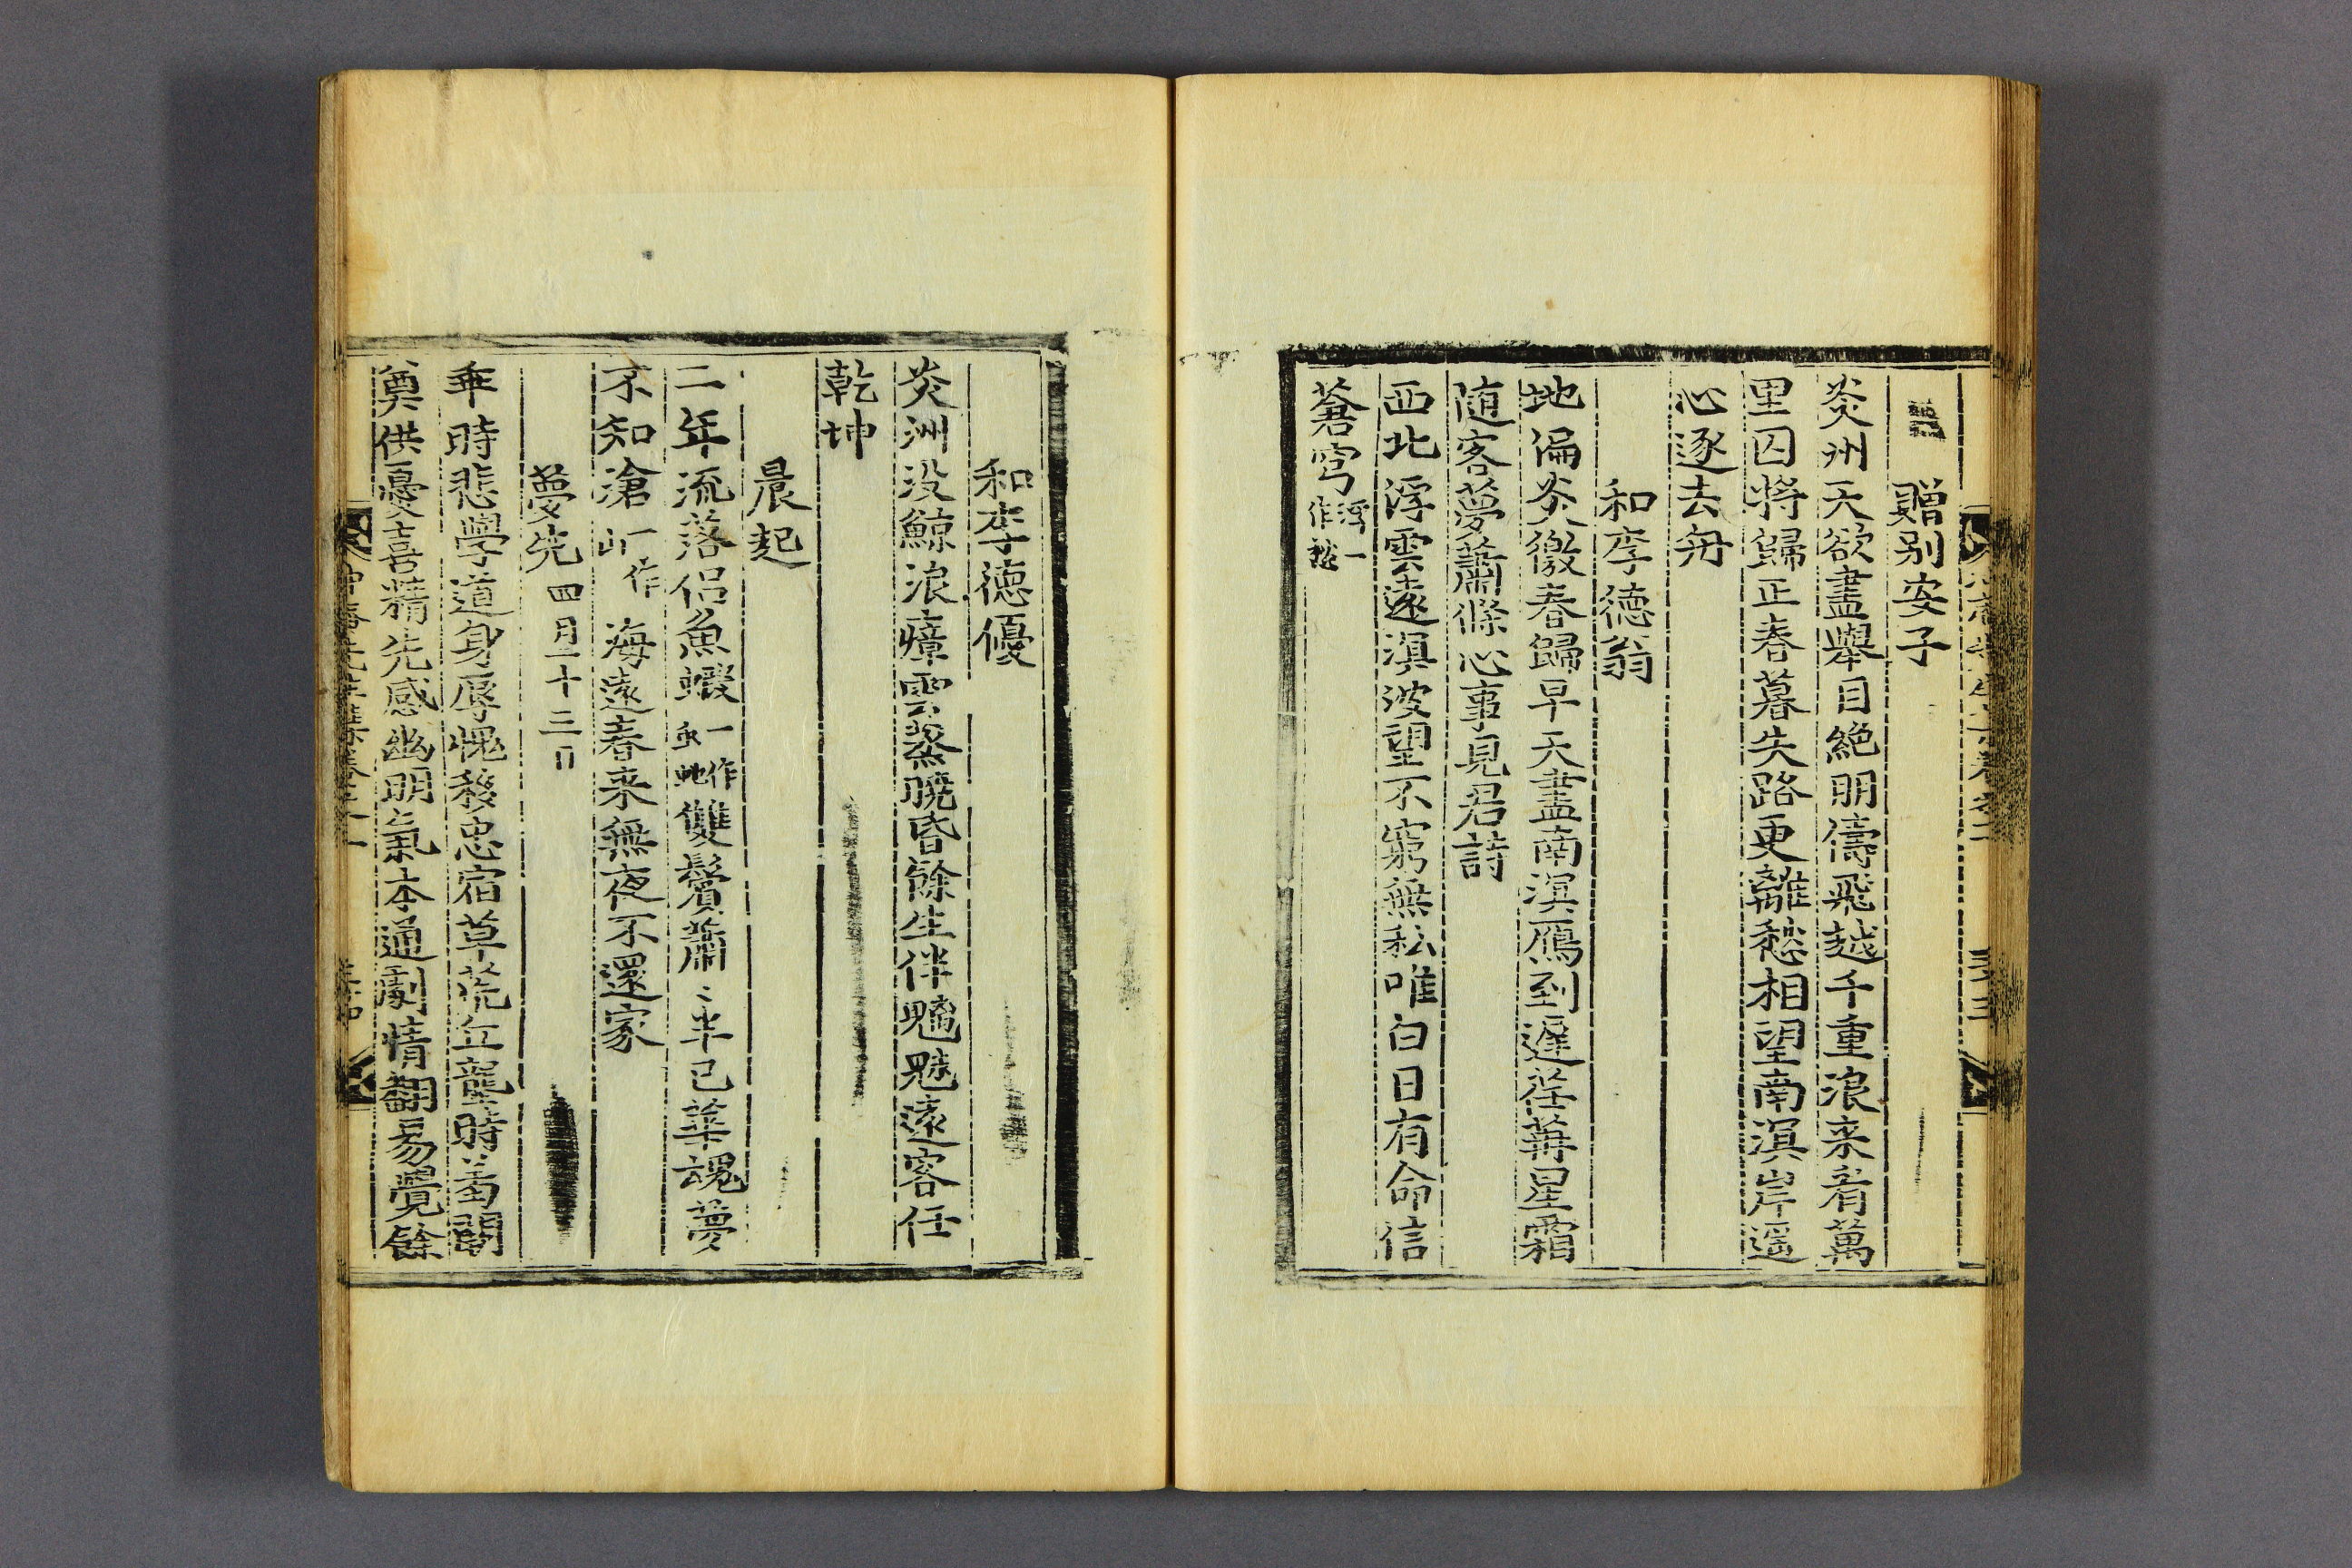 贈别安子
炎州天欲盡舉目絶朋儔飛越千重浪来看萬
里囚將歸正春暮失路更離愁相望南溟岸遥
心逐去舟
和李德翁
地偏炎徼春歸早天盡南溟鴈到遲荏苒星霜
随客夢蕭條心事見君詩
西北浮雲遠溟波望不窮無私唯白日有命信
蒼穹浮一作愁
和李德優
炎洲没鯨浪瘴雲蒸曉昏餘生伴魑魅遠客任
乾坤
晨起
二年流落侣魚蝦一作虫蛇雙鬢蕭〻半已華魂夢
不知滄一作山海遠春来無夜不還家
夢先四月二十三日
乖時悲學道身辱愧移忠宿草荒丘壟時羞闕
奠供憂喜精先感幽明氣本通劇情翻易覺餘